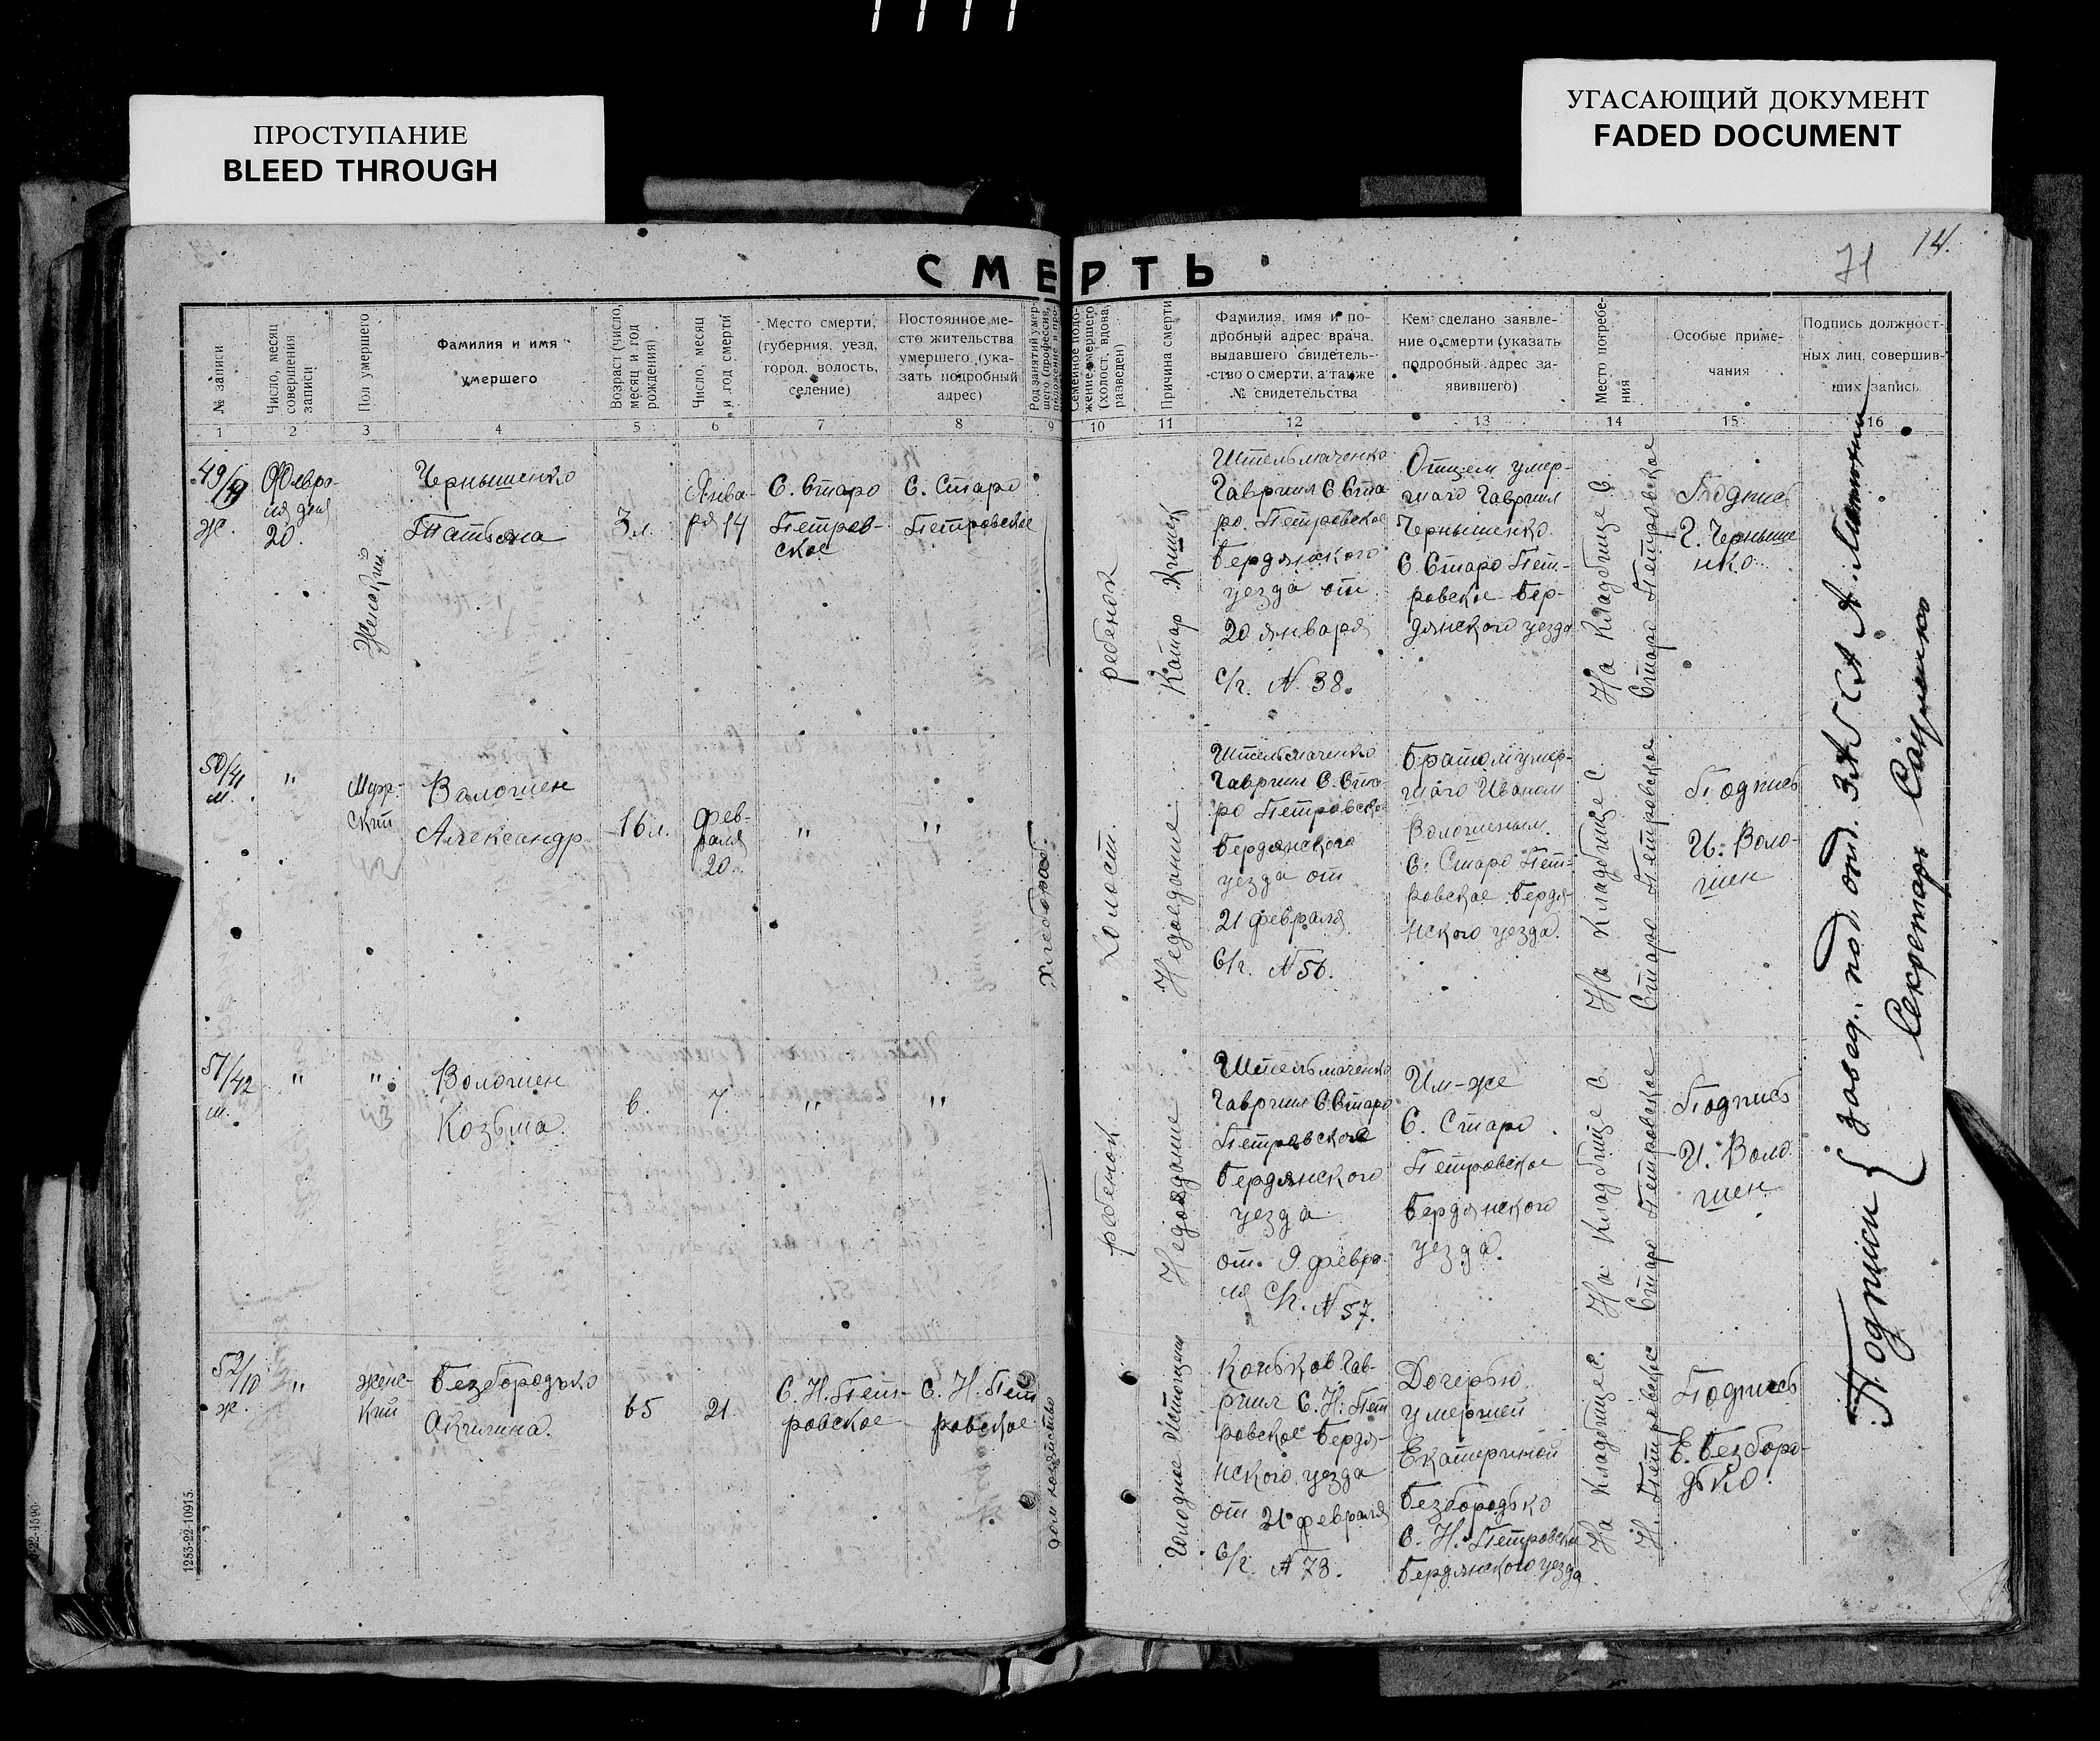 ПРОСТУПАНИЕ
BLEED THROUGH
УГАСАЮЩИЙ ДОКУМЕНТ
FADED DOCUMENT
71
14.
СМЕРТЬ
№ записи
Число, месяц
совершения
записи
Пол умершего
Фамилия и имя
умершего
Возраст (число,
месяц и год
рождения)
Число, месяц
и год смерти
Место смерти,
(губерния, уезд,
город, волость,
селение)
Постоянное ме-
сто жительства
умершего (ука-
зать подробный
адрес)
Род занятий умер-
шего (профессия,
Семейное поло-
жение умершего
(холост, вдова,
разведен)
Причина смерти
Фамилия, имя и по-
дробный адрес врача,
выдавшего свидетель-
ство о смерти, а также
№ свидетельства
Кем сделано заявле-
ние о смерти (указать
подробный адрес за-
явившего)
Место погребе-
ния
Особые приме-
чания
Подпись должност-
ных лиц, совершив-
ших запись
1 2 3 4 5 6 7 8 9 10 11 12 13 14 15 16
49/9
ж.
Февра-
ля дня
20.
Женский
Чернышенко
Татьяна
3 л.
Янва-
ря 14
С. Старо
Петров-
ское
С. Старо
Петровское
ребенок
Катар Кишек
Штельмаченко
Гавриил С. Ста
ро. Петровское
Бердянского
уезда от
20 января
с/г. № 38.
Отцем умер-
шаго Гавриил
Чернышенко
С. Старо Пет-
ровское Бер-
дянского уезда
На Кладбище С.
Старо Петровское
Подпись
Г. Черныше
нко
50/41
м.
"
Муж-
ский
Волошен
Александр
16 л.
Фев-
раля
20.
"
"
Хлебороб.
Холост.
Недоедание.
Штельмаченко
Гавриил С. Ста-
ро Петровское
Бердянского
уезда от
21 февраля
С/г. № 56.
Братом умер-
шаго Иваном
Волошеным.
С. Старо Пет-
ровское Бердя-
нского уезда.
На Кладбище С.
Старо Петровское
Подпись
И. Воло-
шен
51/42
м.
"
"
Волошен
Козьма.
6.
7.
"
"
ребенок
Недоедание
Штельмаченко
Гавриил С. Старо
Петровское
Бердянского
уезда
от. 9 февра-
ля С/г. № 57.
Им-же
С. Старо
Петровское
Бердянского
уезда.
На Кладбище С.
Старо Петровское
Подпись
И. Воло
шен
52/10
ж.
"
женс-
кий
Безбородько
Акилина.
65
21.
С. Н. Пет-
ровское
С. Н. Пет
ровское
дом хозяйство
Голодное истощен
Коньков Гав-
риил С. Н. Пет
ровское Бердя-
нского уезда
от 21 февраля
С/г. № 73.
Дочерью
умершей
Екатериной
Безбородько
С. Н. Петровское
Бердянского уезда
На Кладбище С.
Н. Петровское
Подпись
Е. Безборо-
дько.
Подписи { завед. под отд. ЗАГСА А.
Секретарь
1253-22-10915.